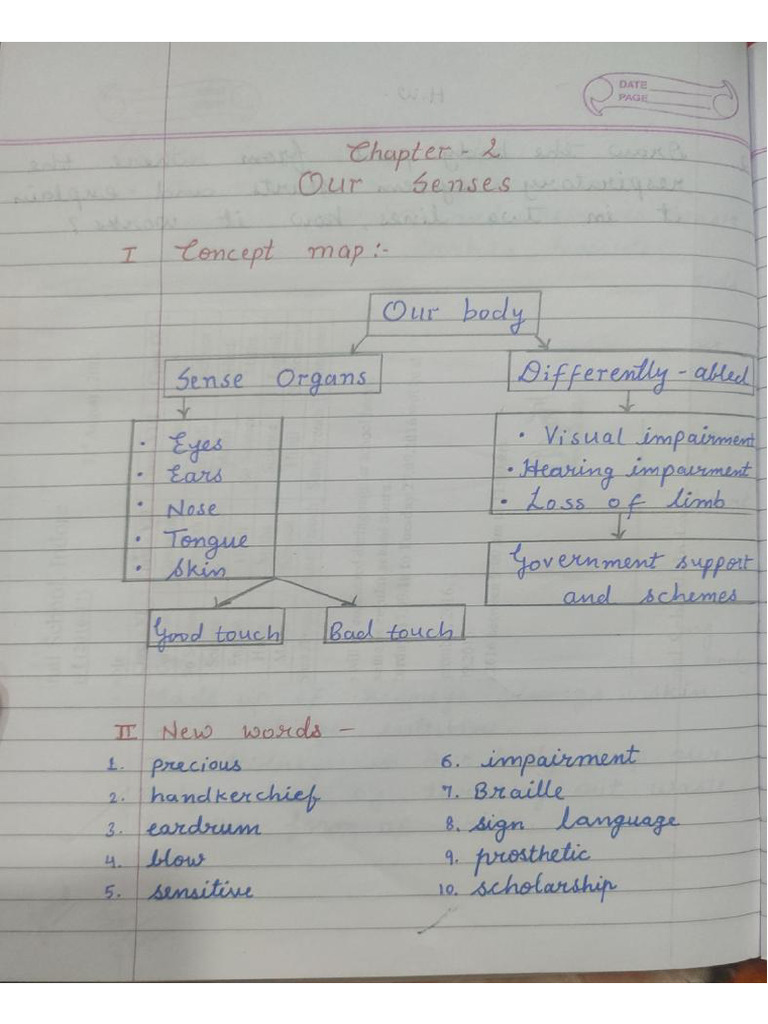 DATE
PAGE
Chapter - 2
Our Senses
I Concept map :-
Our body
Sense Organs
Differently - abled
• Eyes
• Ears
• Nose
• Tongue
• Skin
• Visual impairment
• Hearing impairment
• Loss of limb
Government support
and schemes
Good touch
Bad touch
II New words -
1. precious
2. handkerchief
3. eardrum
4. blow
5. sensitive
6. impairment
7. Braille
8. sign language
9. prosthetic
10. scholarship